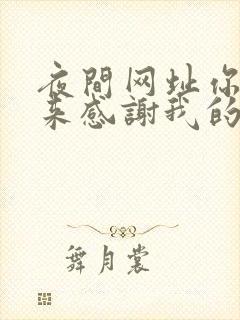 夜間网址你
来感謝我的
舞月裳